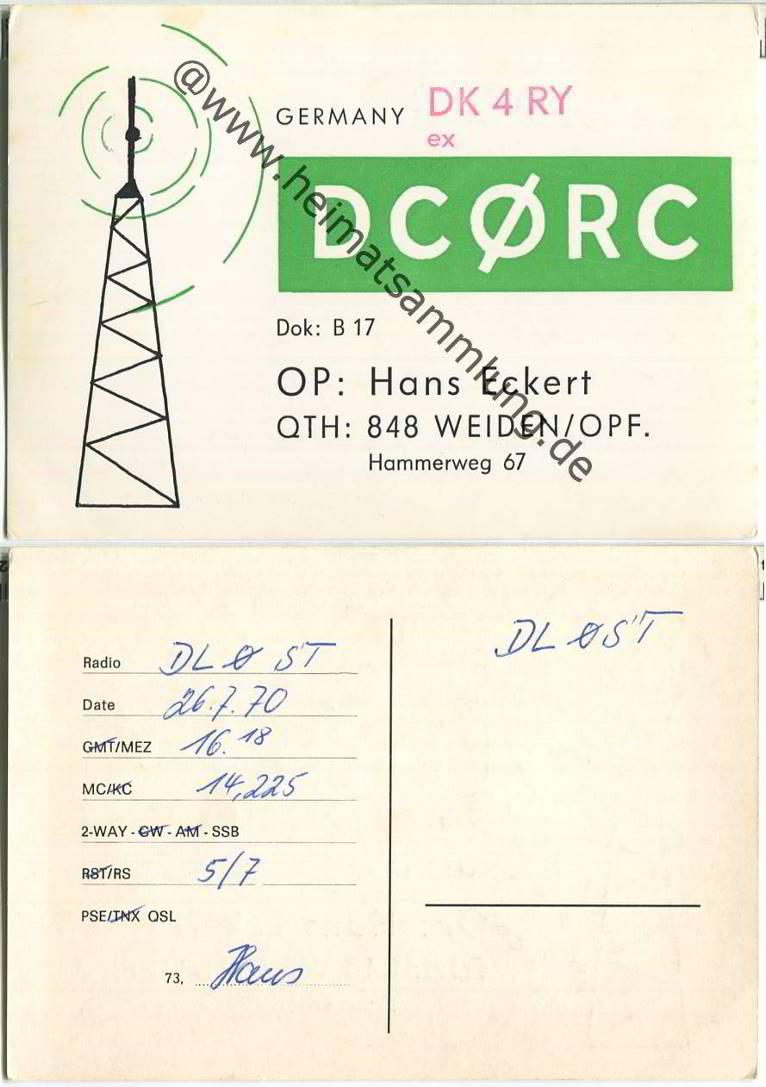 GERMANY DK 4 RY
ex
DCØRC
Dok: B 17
OP: Hans Eckert
QTH: 848 WEIDEN/OPF.
Hammerweg 67
@www.heimatsammlung.de
DL Ø ST
Radio DL Ø ST
Date 26.7.70
GMT/MEZ 16.18
MC/KC 14,225
2-WAY - CW - AM - SSB
RST/RS 5/7
PSE/TNX QSL
73, Hans